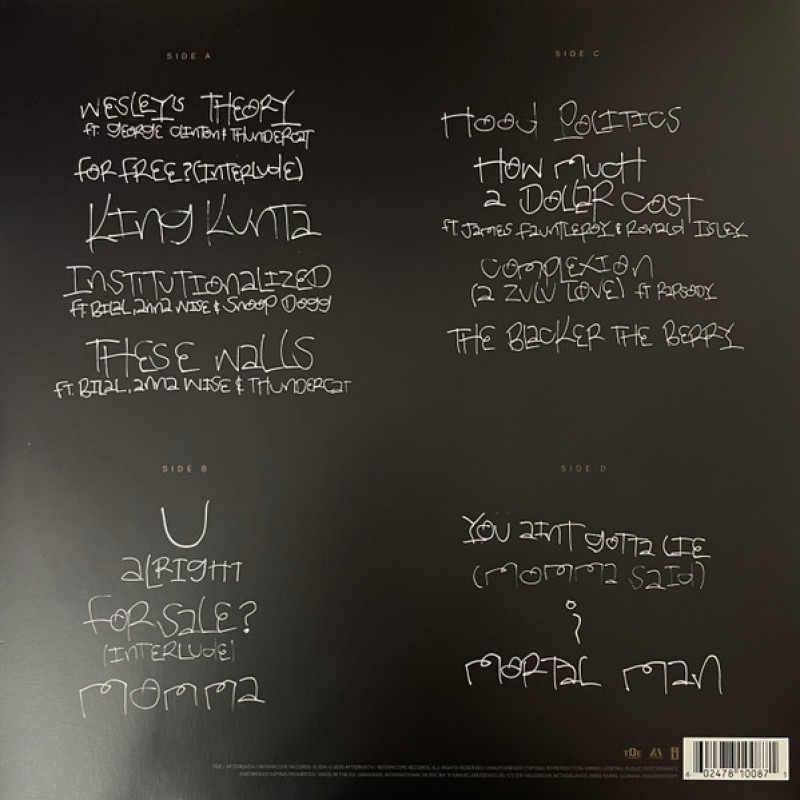 SIDE A
WESLEY'S THEORY
FT. GEORGE CLINTON & THUNDERCAT
FOR FREE? (INTERLUDE)
KING KUNTA
INSTITUTIONALIZED
FT. BILAL, ANNA WISE & SNOOP DOGG
THESE WALLS
FT. BILAL, ANNA WISE & THUNDERCAT
SIDE B
U
ALRIGHT
FOR SALE?
(INTERLUDE)
MOMMA
SIDE C
HOOD POLITICS
HOW MUCH
A DOLLAR COST
FT. JAMES FAUNTLEROY & RONALD ISLEY
COMPLEXION
(A ZULU LOVE) FT RAPSODY
THE BLACKER THE BERRY
SIDE D
YOU AINT GOTTA LIE
(MOMMA SAID)
i
MORTAL MAN
TDE
6 02478 10087 1